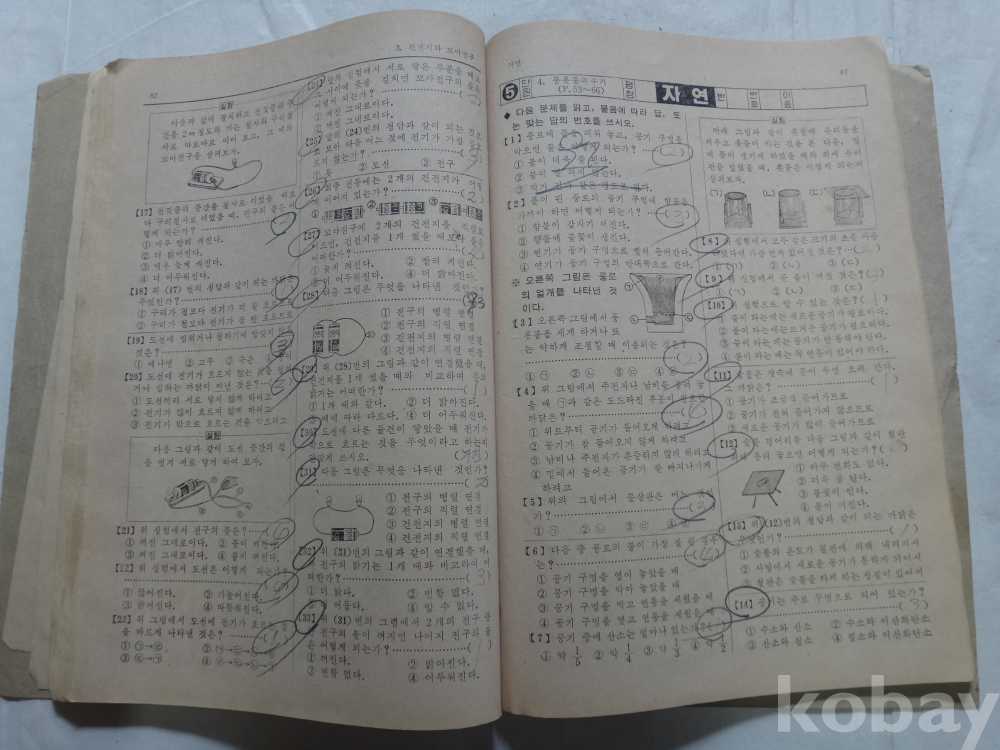 82
3. 전진지와 꼬마전구
실험
다음과 같이 장치하고 전깃줄의 중
간을 2m 정도의 가는 철사와 구리철
사로 따로따로 이어 보고, 그 때의
꼬마전구를 살펴보자.
[17] 전깃줄의 중간을 철사로 이었을 때보
다 구리철사로 이었을 때, 전구의 불은 어
떻게 되는가?
① 매우 빨리 켜진다.
② 더 밝아진다.
③ 매우 늦게 켜진다.
④ 더 어두워진다.
[18] 위 (17)번의 정답과 같이 되는 까닭은
무엇인가?
① 구리가 철보다 전기가 더 잘 흐르므로
② 구리가 철보다 전기가 잘 안 흐르므로
[19] 도선에
것은?
① 에나멜 ② 고무 ③ 수은
[20] 도선에 전기가 흐르지 않는
거나 칠하는 까닭이 아닌 것은?
① 도선끼리 서로 닿지 않게 하려고
② 전기가 많이 흐르지 않게 하려고
③ 전기가 밖으로 흐르는 것을 막으려고
실험
다음 그림과 같이 도선 중간의 겉
을 벗겨 서로 닿게 하여 보자.
[21] 위 실험에서 전구의 불은?
① 켜진 그대로이다. ② 불이 켜진다.
③ 꺼진 그대로이다. ④ 불이 꺼진다.
[22] 위 실험에서 도선은 어떻게 되는가?
① 끊어진다. ② 가늘어진다.
③ 굵어진다. ④ 따뜻해진다.
[23] 위 실험에서 도선에 전기가 흐르는
을 바르게 나타낸 것은?
[24] 위의 실험에서 서로 닿은 부분을 떼고
사이에 못을 걸치면 꼬마전구의 불은
어떻게 되는가?
① 켜진 그대로이다.
② 꺼진 그대로이다.
[25] 위의 (24)번의 정답과 같이 되는 것으로
보아 다음 어느 것에 전기가 가장 잘 흐
르지 않는가?
① 못 ② 도선 ③ 전구
[26] 회중 전등에는 2개의 건전지가 어떻
게 이어져 있는가?
[27] 꼬마전구에 2개의 건전지를 직렬로
이으면, 건전지를 1개 썼을 때보다 불은
어떠한가?
① 늦게 켜진다. ② 빨리 켜진다.
③ 어두워진다. ④ 더 밝아진다.
[28] 다음 그림은 무엇을 나타낸 것인가?
① 전구의 병렬 연결
② 전구의 직렬 연결
③ 건전지의 병렬 연결
④ 건전지의 직렬 연결
[29] 위 (28)번의 그림과 같이 연결했을 때,
건전지를 1개 썼을 때와 비교하여 전구의
밝기는 어떠한가?
① 1개 때와 같다. ② 더 밝아진다.
③ 때에 따라 다르다. ④ 더 어두워진다.
[30] 도선에 다른 물건이 닿았을 때 전기가
밖으로 흐르는 것을 무엇이라고 하는지
알맞게 쓰시오.
[31] 다음 그림은 무엇을 나타낸 것인가?
① 전구의 병렬 연결
② 전구의 직렬 연결
③ 건전지의 병렬 연결
④ 건전지의 직렬 연결
[32] 위 (31)번의 그림과 같이 연결했을 때,
전구의 밝기는 1개 때와 비교하여 어
떠한가?
① 더 밝다. ② 변함 없다.
③ 더 어둡다. ④ 알 수 없다.
[33] 위 (31)번의 그림에서 2개의 전구 중
한 전구의 불이 꺼지면 나머지 전구의 불
은 어떻게 되는가?
① 꺼진다. ② 밝아진다.
③ 변함 없다. ④ 어두워진다.
자연
83
5 단원 4. 숯불피우기 (P.53~66) 평점 자연 반 번호 이름
◆ 다음 문제를 읽고, 물음에 따라 답, 또
는 맞는 답의 번호를 쓰시오.
[1] 풍로에 불을 피워 놓고, 공기 구멍을
막으면 불은 어떻게 되는가?
① 불이 더욱 잘 핀다.
② 불이 잘 피지 않는다.
[2] 불이 핀 풍로의 공기 구멍에 향불을
가까이 하면 어떻게 되는가?
① 향불이 갑자기 꺼진다.
② 향불에 불꽃이 생긴다.
③ 연기가 공기 구멍으로 빨려 들어간다.
④ 연기가 공기 구멍의 반대쪽으로 간다.
※ 오른쪽 그림은 풍로
의 얼개를 나타낸 것
이다.
[3] 오른쪽 그림에서 풍
롯불을 세게 하거나 또
는 약하게 조절할 때 이용되는 것은?
① ㉠ ② ㉡ ③ ㉢ ④ ㉣
[4] 위 그림에서 주전자나 남비를 올려 놓
을 때 ㉠과 같은 도드라진 부분이 필요한
까닭은?
① 위로부터 공기가 들어오게 하려고
② 공기가 잘 들어오지 않게 하려고
③ 남비나 주전자가 흔들리지 않게 하려고
④ 밑에서 들어온 공기가 잘 빠져나가게
하려고
[5] 위의 그림에서 쓸살판은 어느 것인
가?
① ㉠ ② ㉡ ③ ㉢ ④ ㉣
[6] 다음 중 풍로의 불이 가장 잘 필 경우
는?
① 공기 구멍을 열어 놓았을 때
② 공기 구멍을 막아 놓았을 때
③ 공기 구멍을 막고 연통을 세웠을 때
④ 공기 구멍을 열고 연통을 세웠을 때
[7] 공기 중에 산소는 얼마나 있는가?
① 약 1/5 ② 약 1/4 ③ 약 1/3 ④ 약 1/2
실험
아래 그림과 같이 숯불에 유리통을
씌우고 숯불이 타는 것을 본 다음, 밑
에 틈이 생기게 하였을 때와 위에 유리
판을 덮었을 때, 숯불은 어떻게 되는지
살펴보자.
(ㄱ) (ㄴ) (ㄷ)
[8] 위 실험에서 모두 같은 크기의 초를 사용
하였다면 가장 먼저 꺼지는 것은?
① (ㄱ) ② (ㄴ) ③ (ㄷ)
[9] 위 실험에서 둘 중에 꺼진 것은?
① (ㄱ) ② (ㄴ) ③ (ㄷ)
[10] 위 실험으로 알 수 있는 것은?
① 불이 타는 데는 새로운 공기가 필요하다.
② 불이 타는 데는 뜨거운 공기가 필요하다.
③ 불이 타는 데는 공기가 안 통해야 한다.
④ 불이 타는 데는 꼭 연통이 있어야 한다.
[11] 숯불은 잿속에 묻어 두면 오래 간다.
그 까닭은?
① 공기가 조금씩 들어가므로
② 공기가 전혀 들어가지 않으므로
③ 새로운 공기가 많이 들어가므로
[12] 숯불 덩어리를 다음 그림과 같이 철판
위에 올려 놓으면 어떻게 되는가?
① 아무 변화도 없다.
② 더욱 잘 탄다.
③ 불꽃이 인다.
④ 불이 꺼진다.
[13] 위 (12)번의 정답과 같이 되는 까닭은
무엇인가?
① 숯불의 온도가 철판에 의해 내려져서
② 사방에서 새로운 공기가 통하게 되어서
③ 철판은 숯불을 타게 하는 성질이 있어서
[14] 공기는 주로 무엇으로 되어 있는가?
① 수소와 산소 ② 수소와 이산화탄소
③ 산소와 질소 ④ 질소와 이산화탄소
kobay